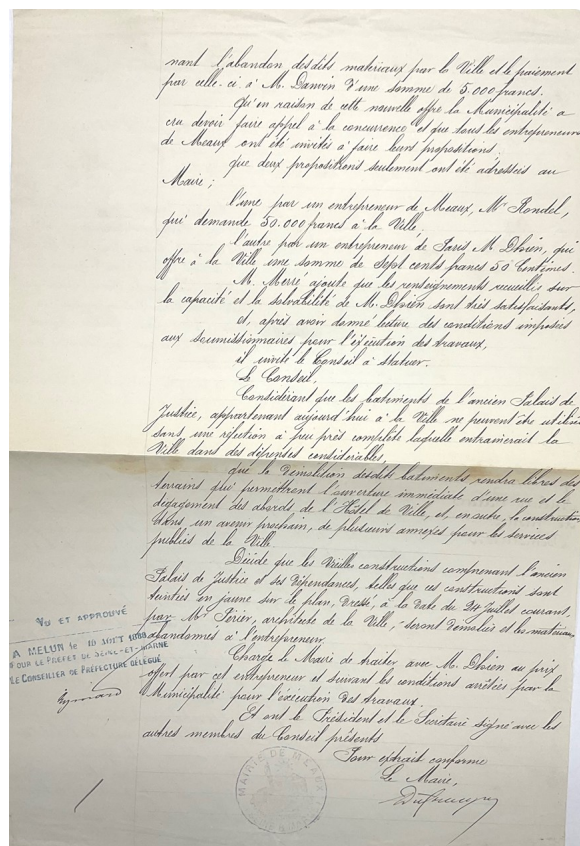 nant l'abandon desdits matériaux par la Ville et le paiement
par celle-ci à M. Danvin d'une somme de 5.000 francs.
Qu'en raison de cette nouvelle offre la Municipalité a
cru devoir faire appel à la concurrence et que tous les entrepreneurs
de Meaux ont été invités à faire leurs propositions.
que deux propositions seulement ont été adressées au
Maire;
l'une par un entrepreneur de Meaux, Mr Rondel,
qui demande 50.000 francs à la Ville,
l'autre par un entrepreneur de Paris M. Dhién, qui
offre à la Ville une somme de Sept cents francs 50 Centimes.
M. Merré ajoute que les renseignements recueillis sur
la capacité et la solvabilité de M. Dhién sont très satisfaisants,
et, après avoir donné lecture des conditions imposées
aux soumissionnaires pour l'éxécution des travaux,
il invite le Conseil à statuer.
Le Conseil,
Considérant que les bâtiments de l'ancien Palais de
Justice, appartenant aujourd'hui à la Ville ne peuvent être utilisés
sans une réfection à peu près complète laquelle entrainerait la
Ville dans des dépenses considérables,
que la Démolition desdits bâtiments rendra libres des
terrains qui permettront l'ouverture immédiate d'une rue et le
dégagement des abords de l'Hôtel de Ville, et, en outre, la construction
dans un avenir prochain, de plusieurs annexes pour les services
publics de la Ville
Décide que les Vieilles constructions comprenant l'ancien
Palais de Justice et ses Dépendances, telles que ces constructions sont
teintées en jaune sur le plan, dressé, à la date du 24 Juillet courant,
par Mr Périer, architecte de la Ville, seront démolies et les matériaux
abandonnés à l'entrepreneur.
Charge le Maire de traiter avec M. Dhién au prix
offert par cet entrepreneur et suivant les conditions arrêtées par la
Municipalité pour l'éxécution des travaux.
Et ont le Président et le Secrétaire signé avec les
autres membres du Conseil présents
Pour extrait conforme
Le Maire,
VU ET APPROUVÉ
A MELUN le 10 AOUT
POUR LE PREFET DE SEINE-ET-MARNE
LE CONSEILLER DE PRÉFECTURE DÉLÉGUÉ
MAIRIE DE MEAUX